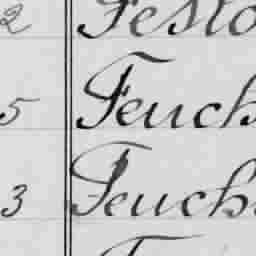 2 Festo
5 Feuch
3 Feuch